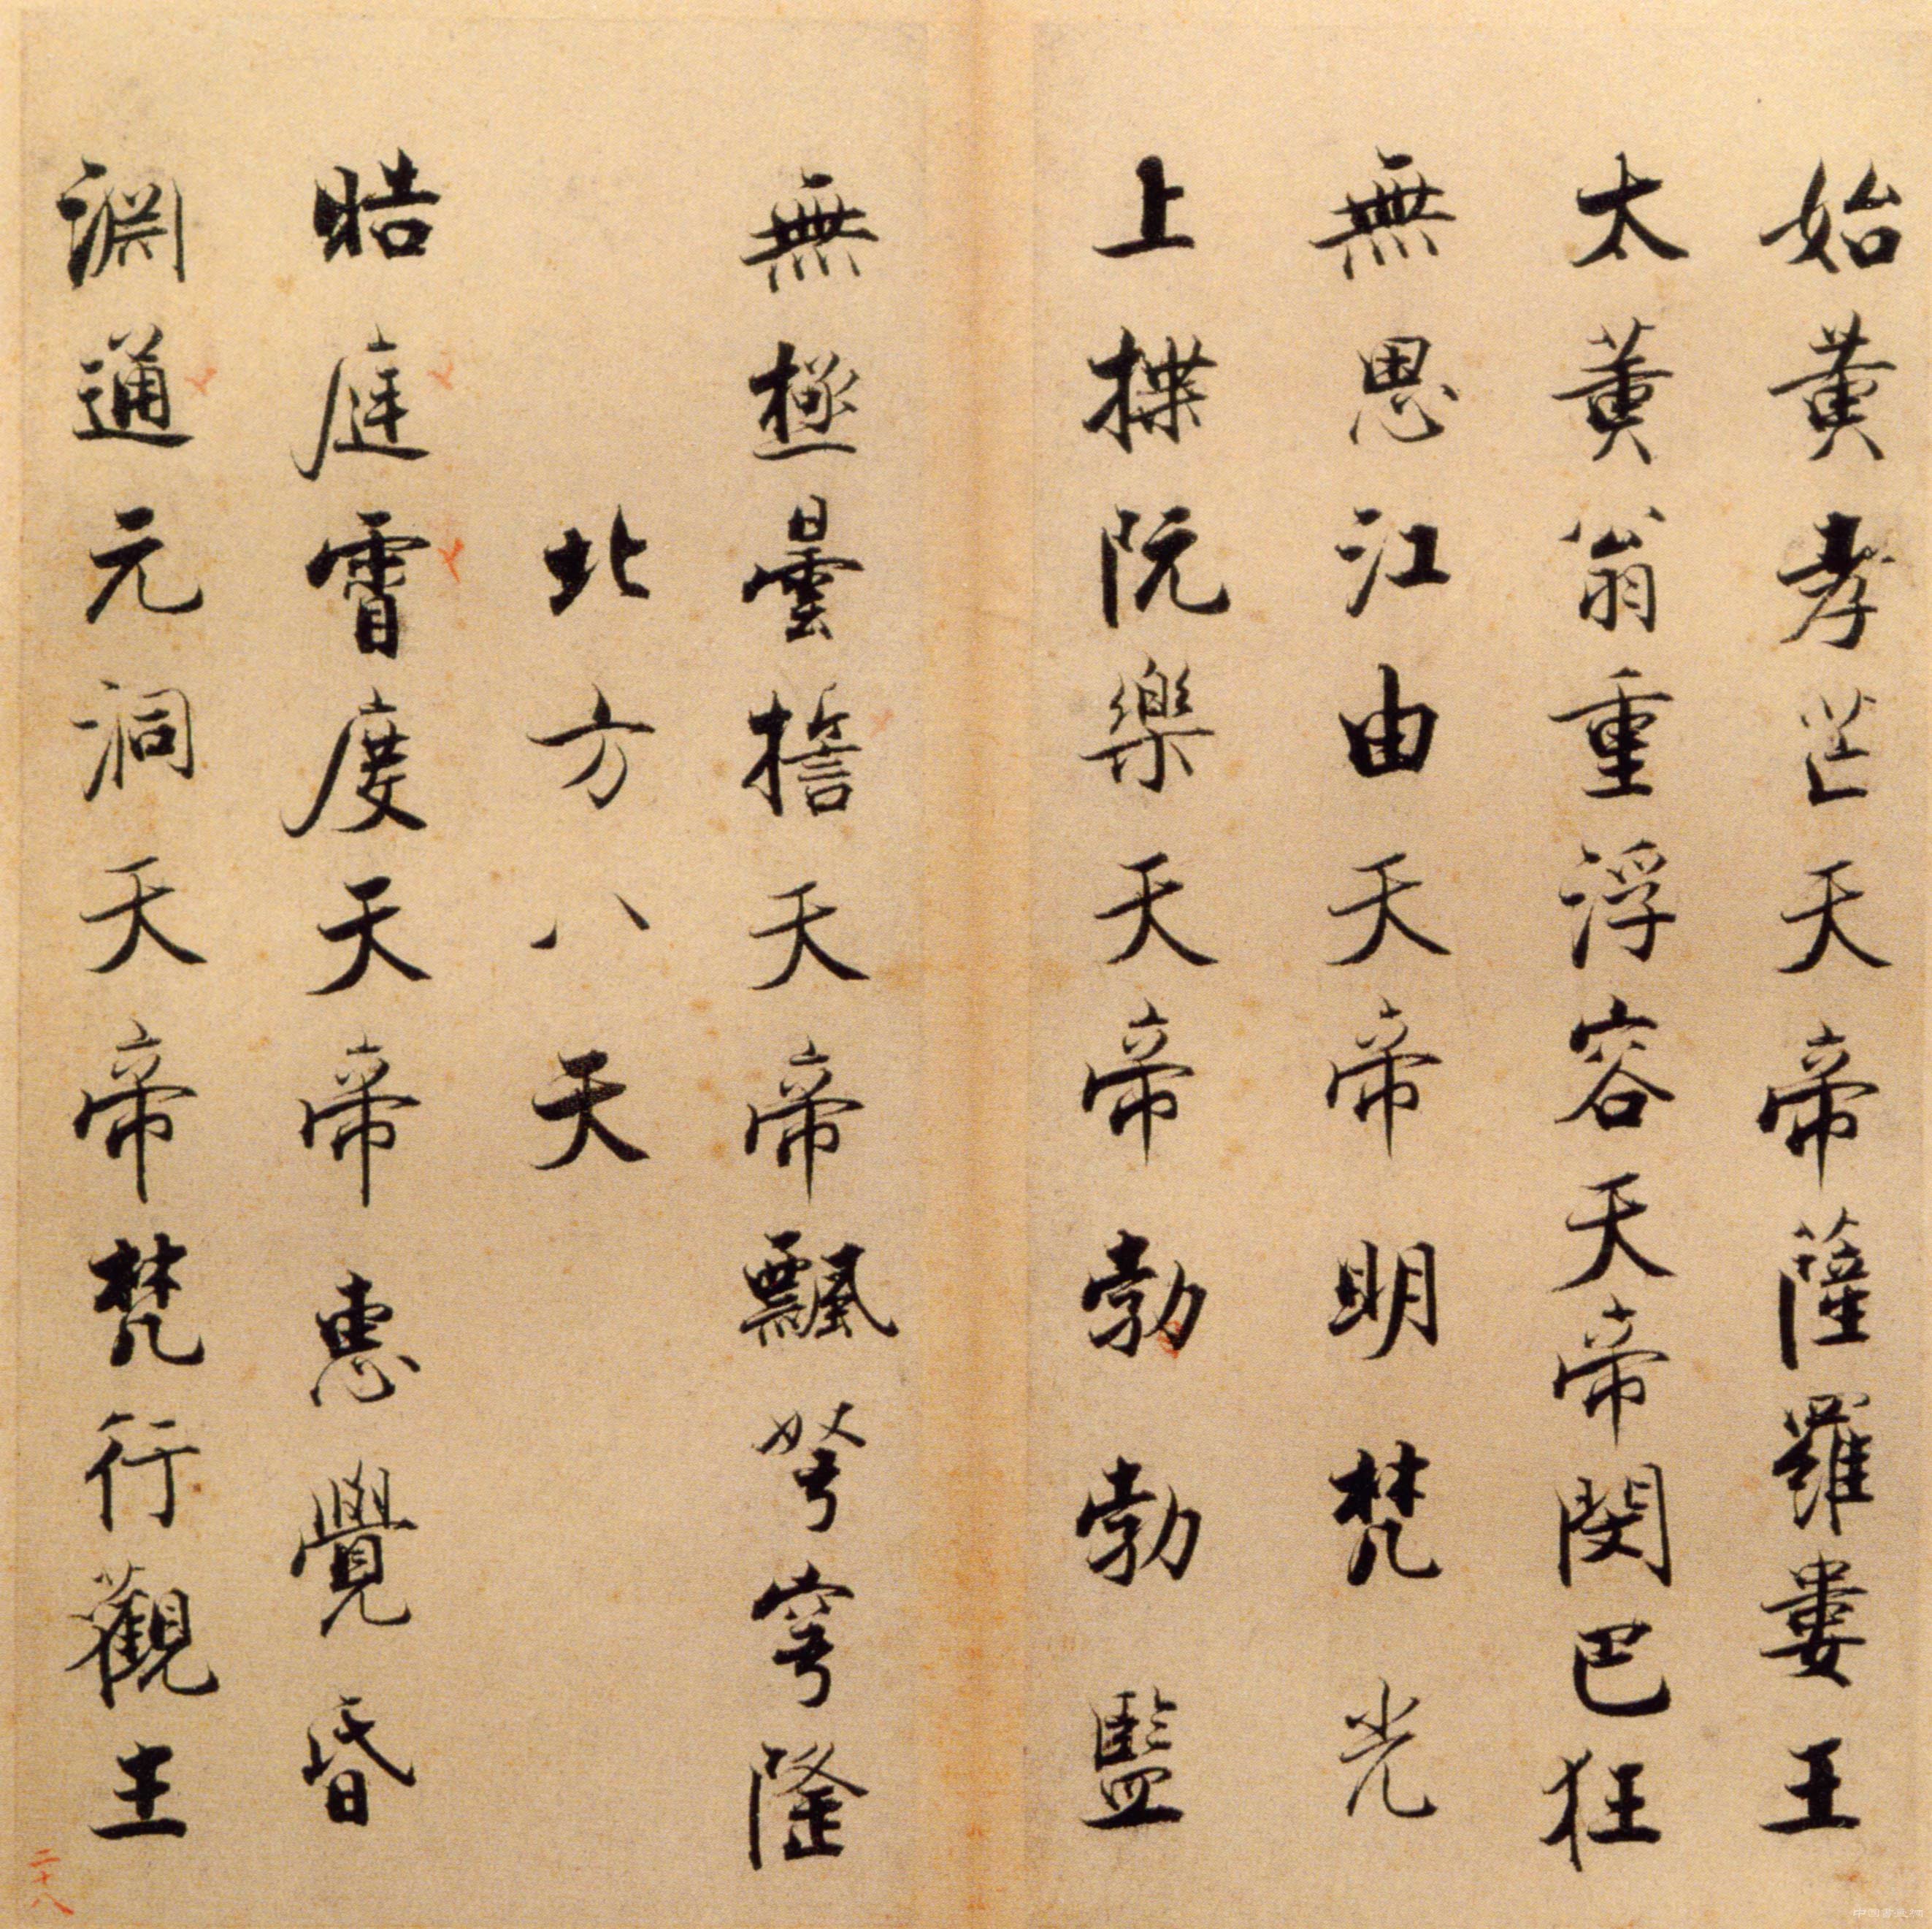 始黄孝芒天帝薩羅婁王
太黄翁重浮容天帝閔巴狂
無思江由天帝明梵光
上揲阮樂天帝勃勃監
無極曇誓天帝飄弩穹隆
北方八天
晧庭霄度天帝惠覺昏
淵通元洞天帝梵行觀主
二十八